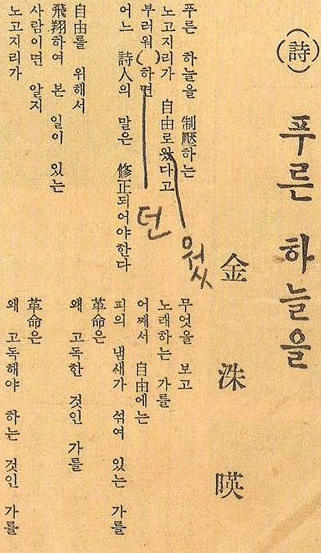 (詩)
푸른 하늘을
金洙暎
푸른 하늘을 制壓하는
노고지리가 自由로왔다고
부러워()하면
어느 詩人의 말은 修正되어야한다
던
웠
自由를 위해서
飛翔하여 본 일이 있는
사람이면 알지
노고지리가
무엇을 보고
노래하는 가를
어째서 自由에는
피의 냄새가 섞여 있는 가를
革命은
왜 고독한 것인 가를
革命은
왜 고독해야 하는 것인 가를